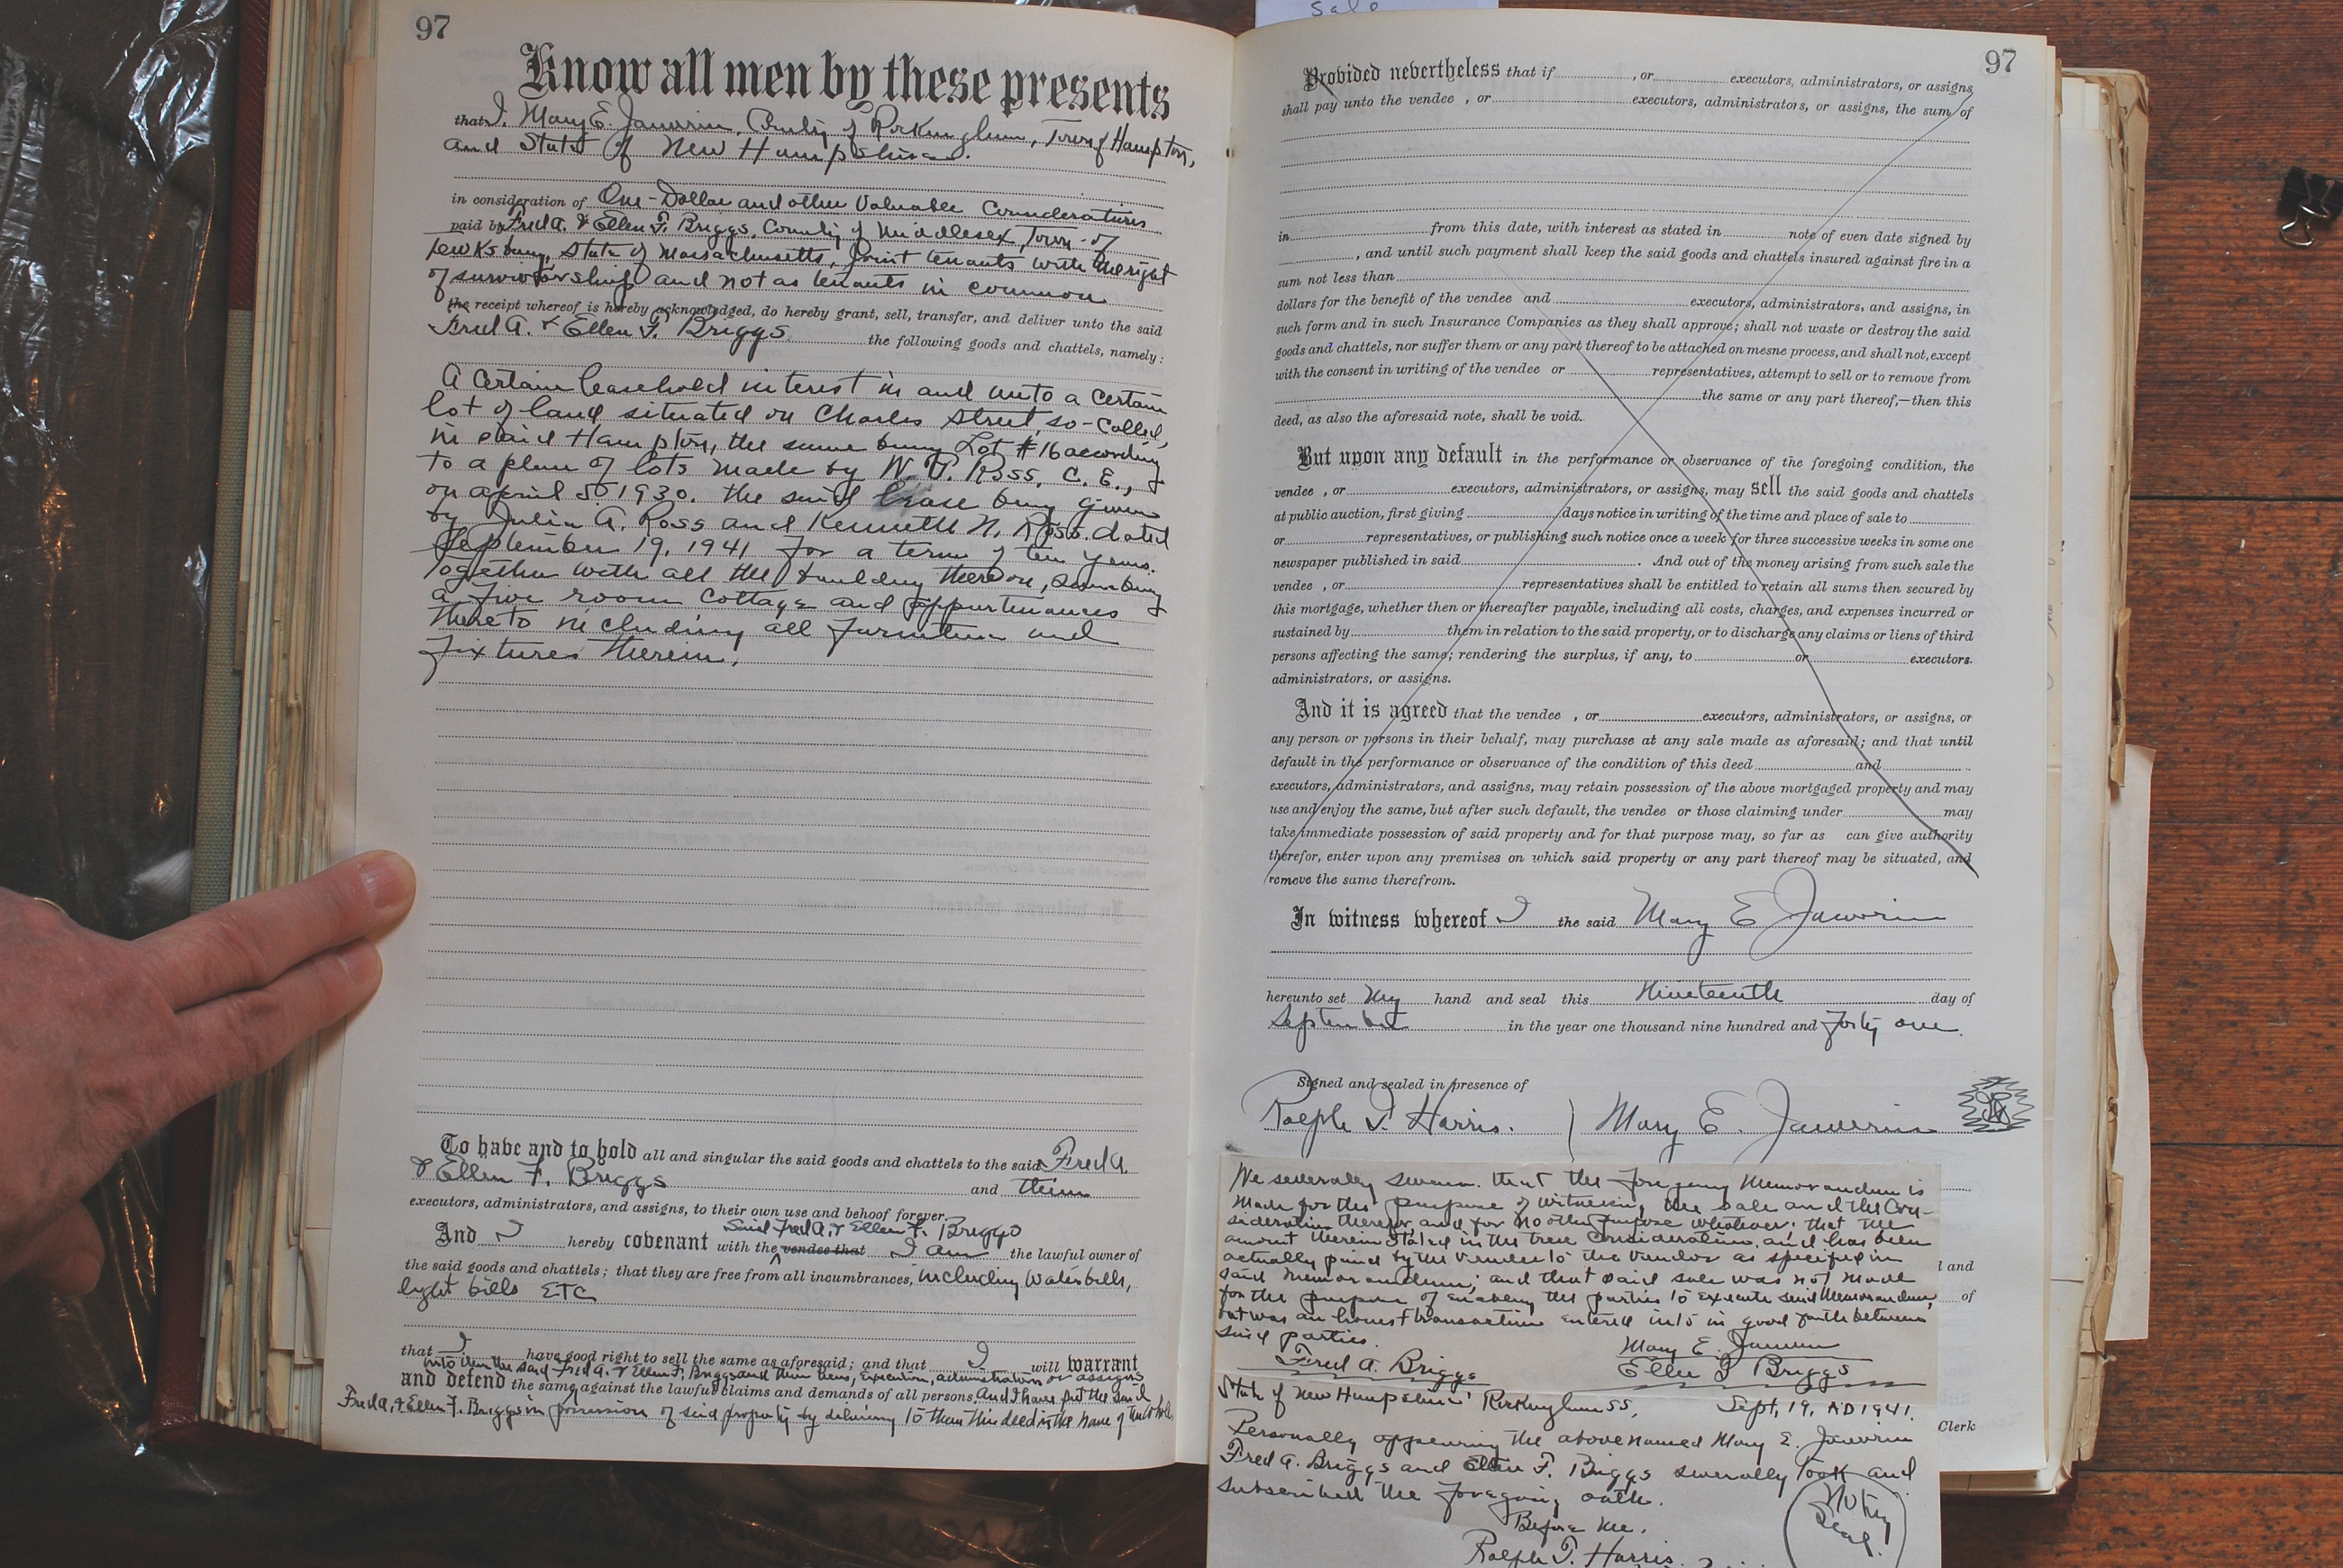 97
Know all men by these presents
that I, Mary E. Janvrin, County of Rockingham, Town of Hampton,
and State of New Hampshire.
in consideration of One-Dollar and other Valuable Considerations
paid by Fred A. & Ellen F. Briggs, County of Middlesex, Town of
Tewksbury, State of Massachusetts, joint tenants with the right
of survivorship and not as tenants in common
the receipt whereof is hereby acknowledged, do hereby grant, sell, transfer, and deliver unto the said
Fred A. & Ellen F. Briggs the following goods and chattels, namely:
A certain leasehold interest in and unto a certain
lot of land situated on Charles Street, so-called,
in said Hampton, the same being Lot #16 according
to a plan of lots made by W. T. Ross, C. E.,
on April 5 1930. the said lease being given
by Julia A. Ross and Kenneth N. Ross. dated
September 19, 1941 for a term of ten years.
Together with all the building thereon, same being
a five room cottage and appurtenances
thereto including all furniture and
fixtures therein.
To have and to hold all and singular the said goods and chattels to the said Fred A.
& Ellen F. Briggs and their
executors, administrators, and assigns, to their own use and behoof forever.
said Fred A. & Ellen F. Briggs
And I hereby covenant with the vendee that I am the lawful owner of
the said goods and chattels; that they are free from all incumbrances, including water bills,
light bills ETC
that I have good right to sell the same as aforesaid; and that I will warrant
unto them the said Fred A. & Ellen F. Briggs and their heirs, executors, administrators or assigns
and defend the same against the lawful claims and demands of all persons. And I have put the said
Fred A. & Ellen F. Briggs in possession of said property by delivering to them this deed in the name of the whole.
sale
97
Provided nevertheless that if , or executors, administrators, or assigns
shall pay unto the vendee , or executors, administrators, or assigns, the sum of
in from this date, with interest as stated in note of even date signed by
, and until such payment shall keep the said goods and chattels insured against fire in a
sum not less than
dollars for the benefit of the vendee and executors, administrators, and assigns, in
such form and in such Insurance Companies as they shall approve; shall not waste or destroy the said
goods and chattels, nor suffer them or any part thereof to be attached on mesne process, and shall not, except
with the consent in writing of the vendee or representatives, attempt to sell or to remove from
the same or any part thereof,—then this
deed, as also the aforesaid note, shall be void.
But upon any default in the performance or observance of the foregoing condition, the
vendee , or executors, administrators, or assigns, may sell the said goods and chattels
at public auction, first giving days notice in writing of the time and place of sale to
or representatives, or publishing such notice once a week for three successive weeks in some one
newspaper published in said . And out of the money arising from such sale the
vendee , or representatives shall be entitled to retain all sums then secured by
this mortgage, whether then or thereafter payable, including all costs, charges, and expenses incurred or
sustained by them in relation to the said property, or to discharge any claims or liens of third
persons affecting the same; rendering the surplus, if any, to or executors.
administrators, or assigns.
And it is agreed that the vendee , or executors, administrators, or assigns, or
any person or persons in their behalf, may purchase at any sale made as aforesaid; and that until
default in the performance or observance of the condition of this deed and
executors, administrators, and assigns, may retain possession of the above mortgaged property and may
use and enjoy the same, but after such default, the vendee or those claiming under may
take immediate possession of said property and for that purpose may, so far as can give authority
therefor, enter upon any premises on which said property or any part thereof may be situated, and
remove the same therefrom.
In witness whereof I the said Mary E Janvrin
hereunto set my hand and seal this Nineteenth day of
September in the year one thousand nine hundred and forty one.
Signed and sealed in presence of
Ralph T. Harris. } Mary E. Janvrin
We severally swear that the foregoing Memorandum is
made for the purpose of witnessing the sale and the Con-
sideration therefor, and for no other purpose whatever: that the
amount therein stated is the true consideration, and has been
actually paid by the Vendee to the Vendor as specified in
said Memorandum; and that said sale was not made
for the purpose of enabling the parties to execute said Memorandum,
but was an honest transaction entered into in good faith between
said parties.
Mary E. Janvrin
Fred A. Briggs Ellen F Briggs
State of New Hampshire Rockingham SS, Sept, 19, AD 1941.
Personally appearing the above named Mary E. Janvrin
Fred A. Briggs and Ellen F. Briggs severally took and
subscribed the foregoing oath.
Before me.
Ralph T. Harris.
Notary
Seal.
and
of
Clerk